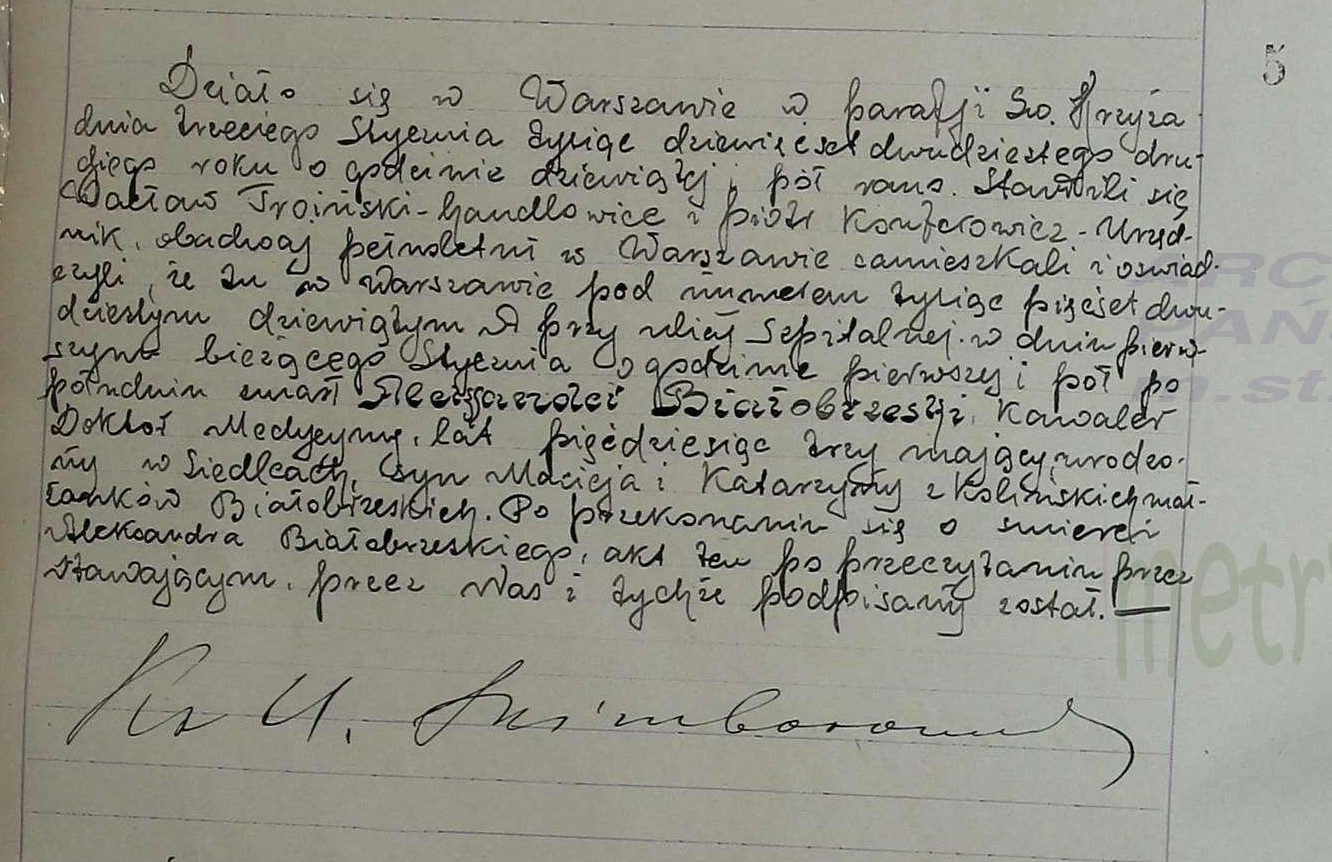 5
Działo się w Warszawie w parafji Św. Krzyża
dnia trzeciego Stycznia tysiąc dziewięćset dwudziestego dru-
giego roku o godzinie dziewiątej i pół rano. Stawili się
Wacław Troiński - handlowiec i Piotr - Urzęd-
nik, obadwaj pełnoletni w Warszawie zamieszkali i oświad-
czyli, że tu w Warszawie pod numerem tysiąc pięćset dwu-
dziestym dziewiątym A przy ulicy Szpitalnej w dniu pierw-
szym bieżącego Stycznia o godzinie pierwszej i pół po
południu zmarł Aleksander Białobrzeski, Kawaler
Doktór Medycyny, lat pięćdziesiąt trzy mający, urodzo-
ny w Siedlcach, syn Macieja i Katarzyny z Kolińskich mał-
żonków Białobrzeskich. Po przekonaniu się o śmierci
Aleksandra Białobrzeskiego, akt ten po przeczytaniu przez
stawającym, przez Nas i tychże podpisany został.